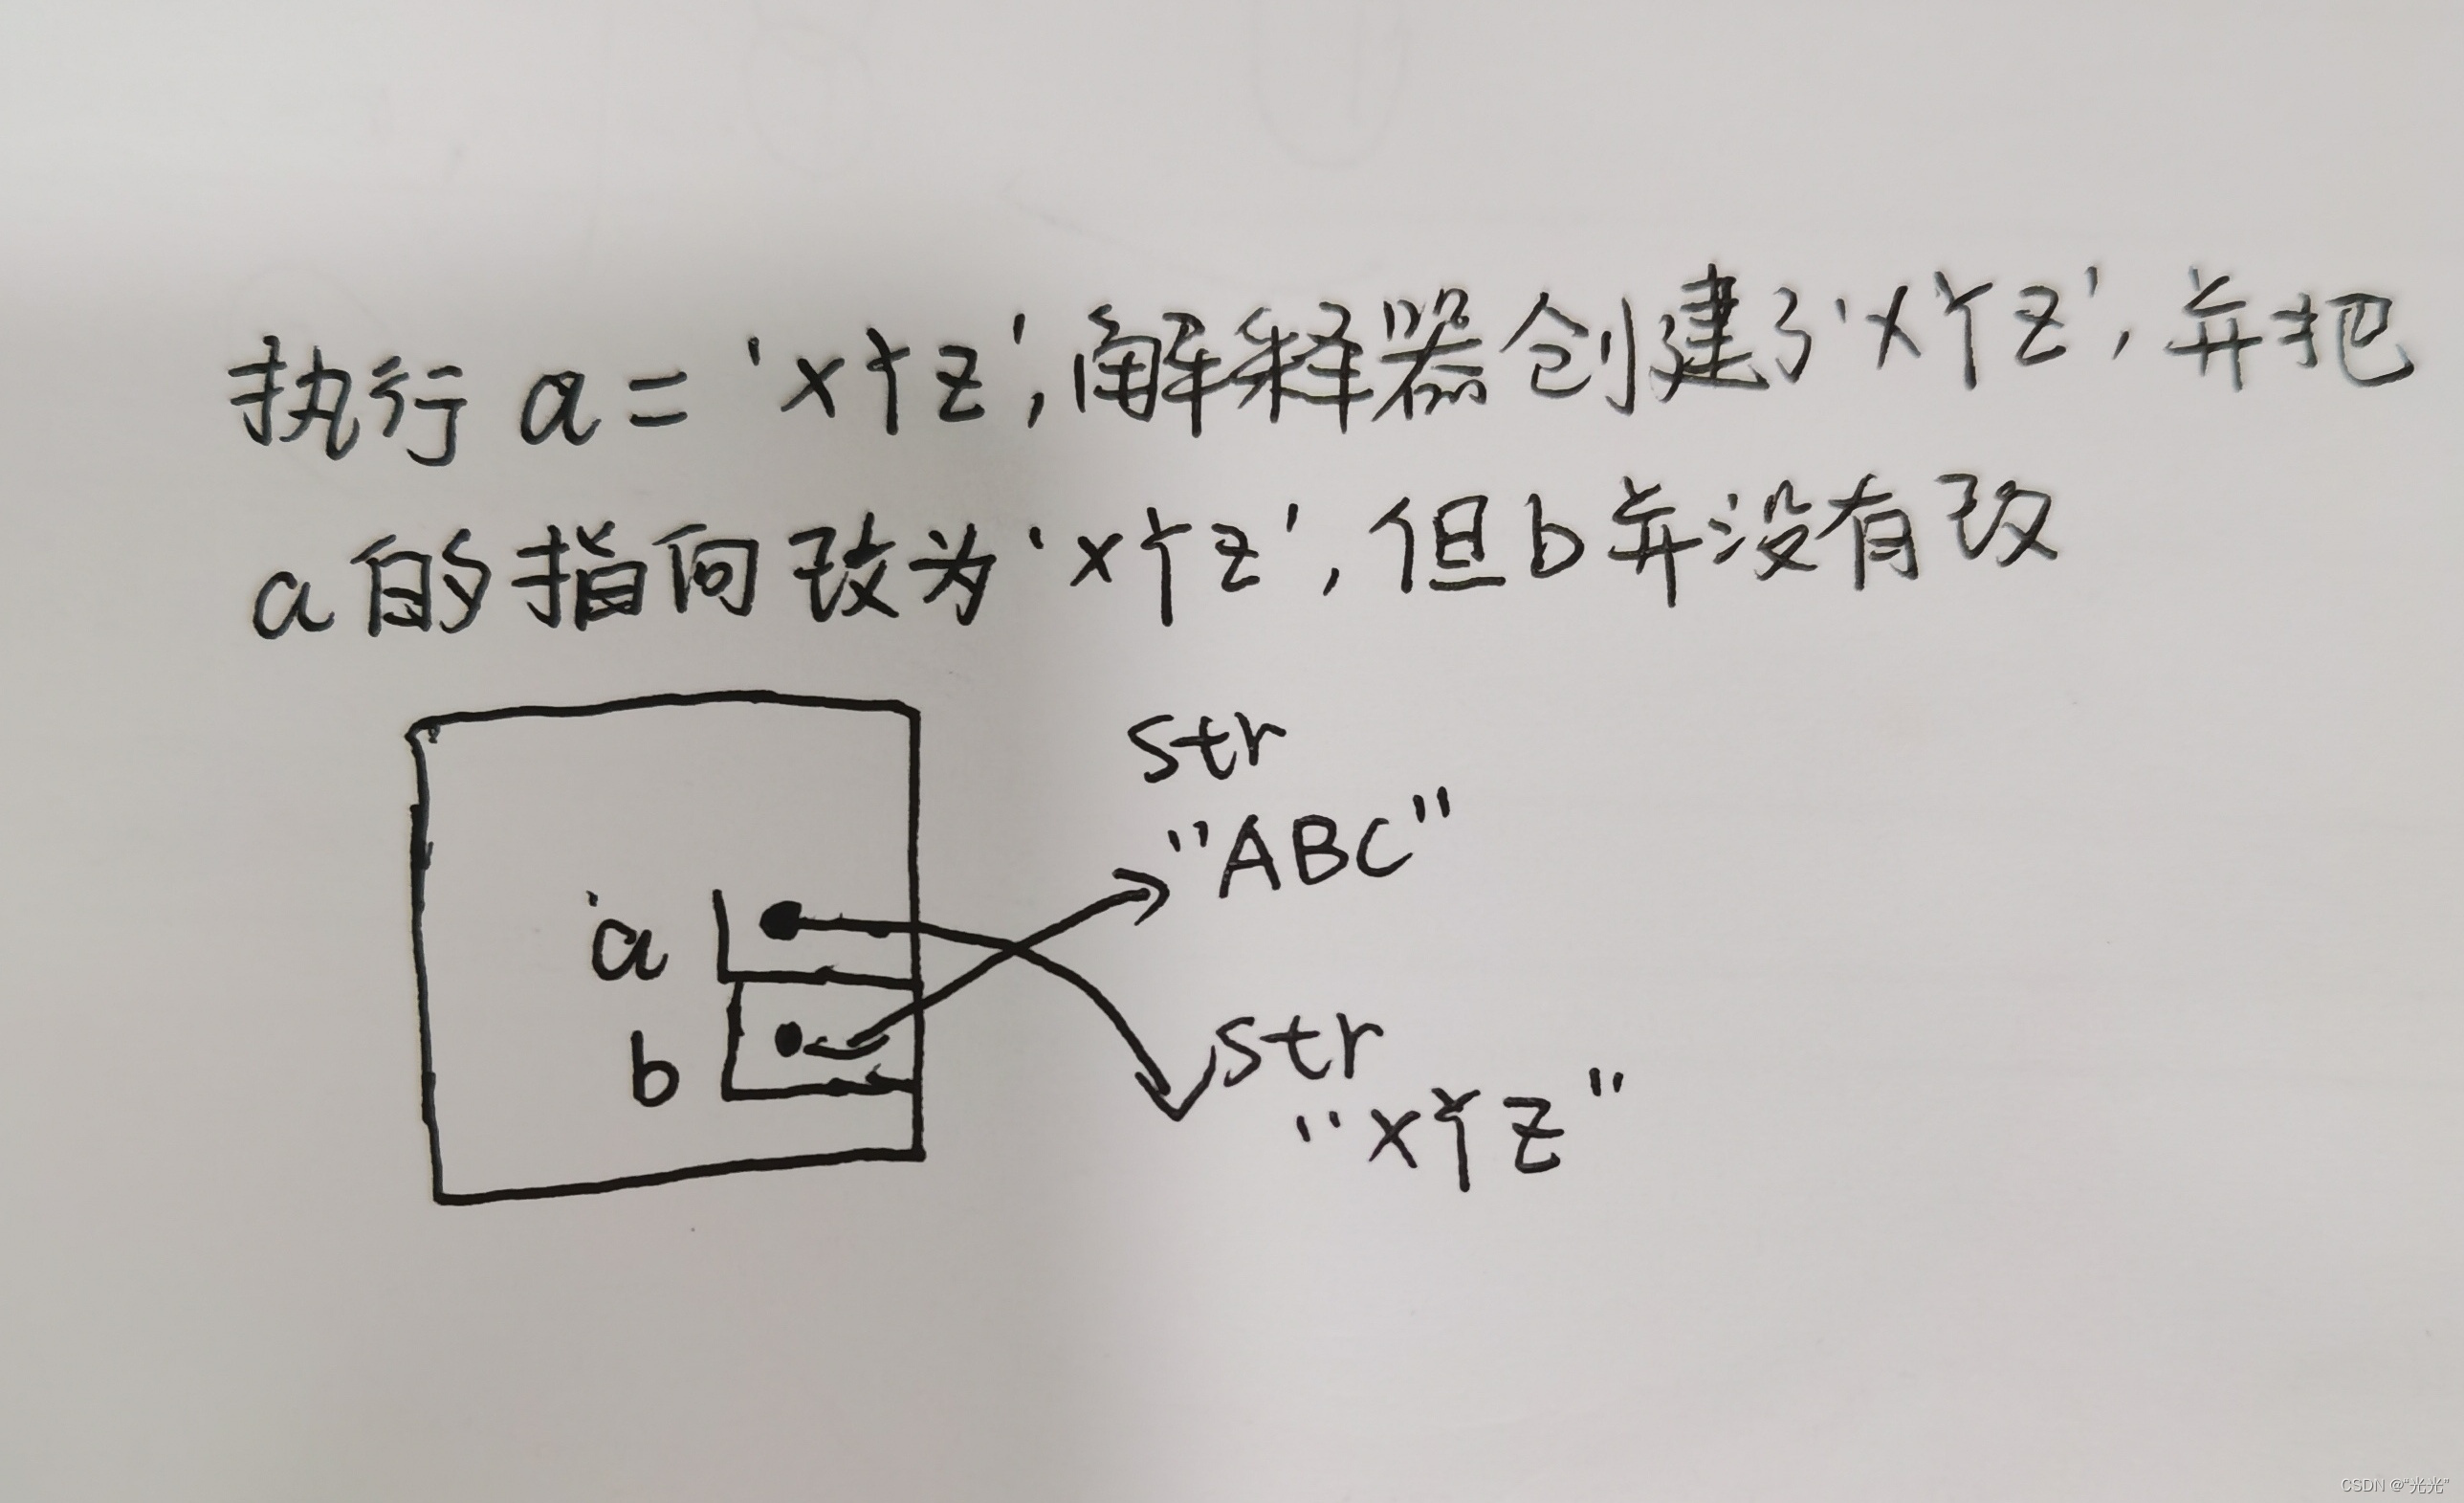 执行 a = 'XYZ', 解释器创建了'XYZ', 并把
a 的指向改为'XYZ', 但b并没有改
str
"ABC"
a
b
str
"XYZ"
CSDN @"光光"